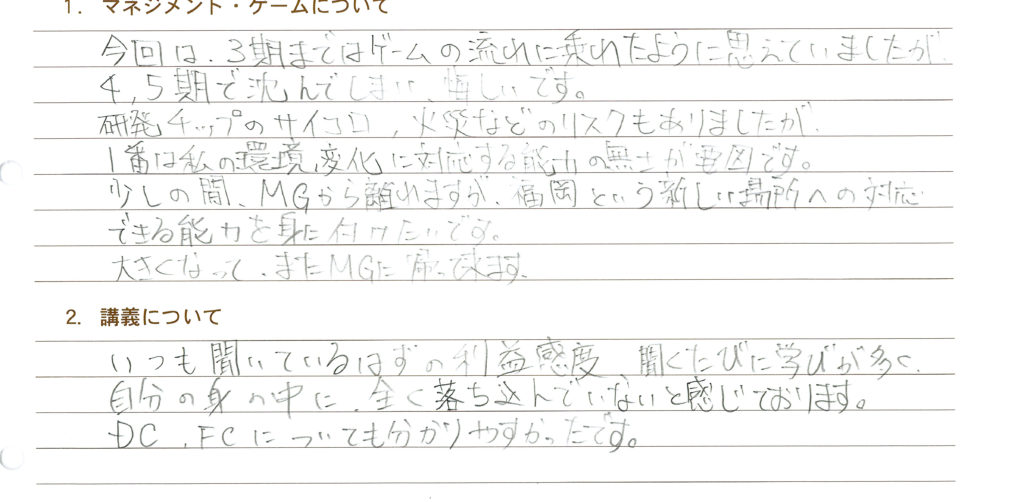 1. マネジメント・ゲームについて
今回は、3期まではゲームの流れに乗れたように思えていましたが、
4,5期で沈んでしまい、悔しいです。
研発チップのサイコロ、火災などのリスクもありましたが、
1番は私の環境変化に対応する能力の無さが要因です。
少しの間、MGから離れますが、福岡という新しい場所への対応
できる能力を身に付けたいです。
大きくなって、またMGに帰って来ます。
2. 講義について
いつも聞いているはずの利益感度、聞くたびに学びが多く、
自分の身の中に、全く落ち込んでいないと感じております。
DC、FCについても分かりやすかったです。